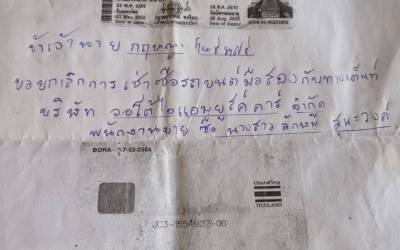 23 พ.ค. 2565
28 ส.ค. 2573
23 May 2022
28 Aug. 2030
ข้าเจ้านาย กฤษณะ
ขอยกเลิกการเช่าซื้อรถยนต์มือสองกับทางเต็นท์
บริษัท ออโต้ไอแอมยูส์ค คาร์ จำกัด
พนักงานขาย ชื่อ นางสาว ลักษมี สุนะวงค์
BORA- 7-03-2564
ประเทศไทย
THAILAND
JC3-1554927-06